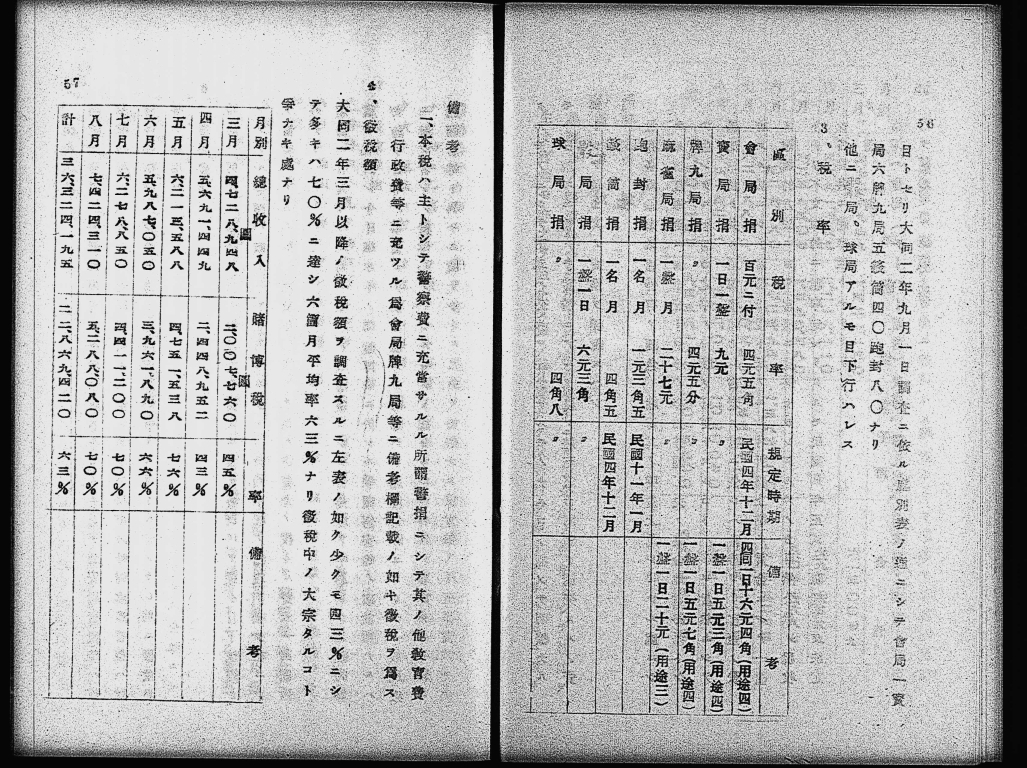 56
日トセリ大同二年九月一日調査ニ依ル區別表ノ通ニシテ會局一寶
局六牌九局五 筒四〇跑封八〇ナリ
他ニ 局。球局アルモ目下行ハレス
3、稅率
區別 稅率 規定時期 備考
會局捐 百元ニ付 四元五角 民國四年十二月 四同一日十六元四角(用途四)
寶局捐 一日一盤 九元 〃 一盤一日五元三角(用途四)
牌九局捐 〃 四元五分 〃 一盤一日五元七角(用途四)
麻雀局捐 一盤月 二十七元 〃 一盤一日二十元(用途三)
跑封捐 一名月 一元三角五 民國十一年一月
筒捐 一名月 四角五 民國四年十二月
局捐 一盤一日 六元三角 〃
球局捐 〃 四角八 〃
備考
一、本稅ハ主トシテ警察費ニ充當サルル所謂警捐ニシテ其ノ他敎育費
行政費等ニ充ツル爲會局牌九局等ニ備考欄記載ノ如キ徵稅ヲ爲ス
4、徵稅額
大同二年三月以降ノ徵稅額ヲ調査スルニ左表ノ如ク少クモ四三%ニシ
テ多キハ七〇%ニ達シ六箇月平均率六三%ナリ徵稅中ノ大宗タルコト
ナキ處ナリ
月別 總收入 賭博稅 率 備考
三月 四、七二八、九四八圓 二、〇〇七、七六〇圓 四五%
四月 五、六九一、四四九 二、四四八、九五二 四三%
五月 六、二一三、五八八 四、七五一、五三八 七六%
六月 五、九八七、〇五〇 三、九六一、八九〇 六六%
七月 六、二七八、八五〇 四、四一一、二〇〇 七〇%
八月 七、四二四、三一〇 五、二八八、〇八〇 七〇%
計 三六、三二四、一九五 二二、八六九、四二〇 六三%
57